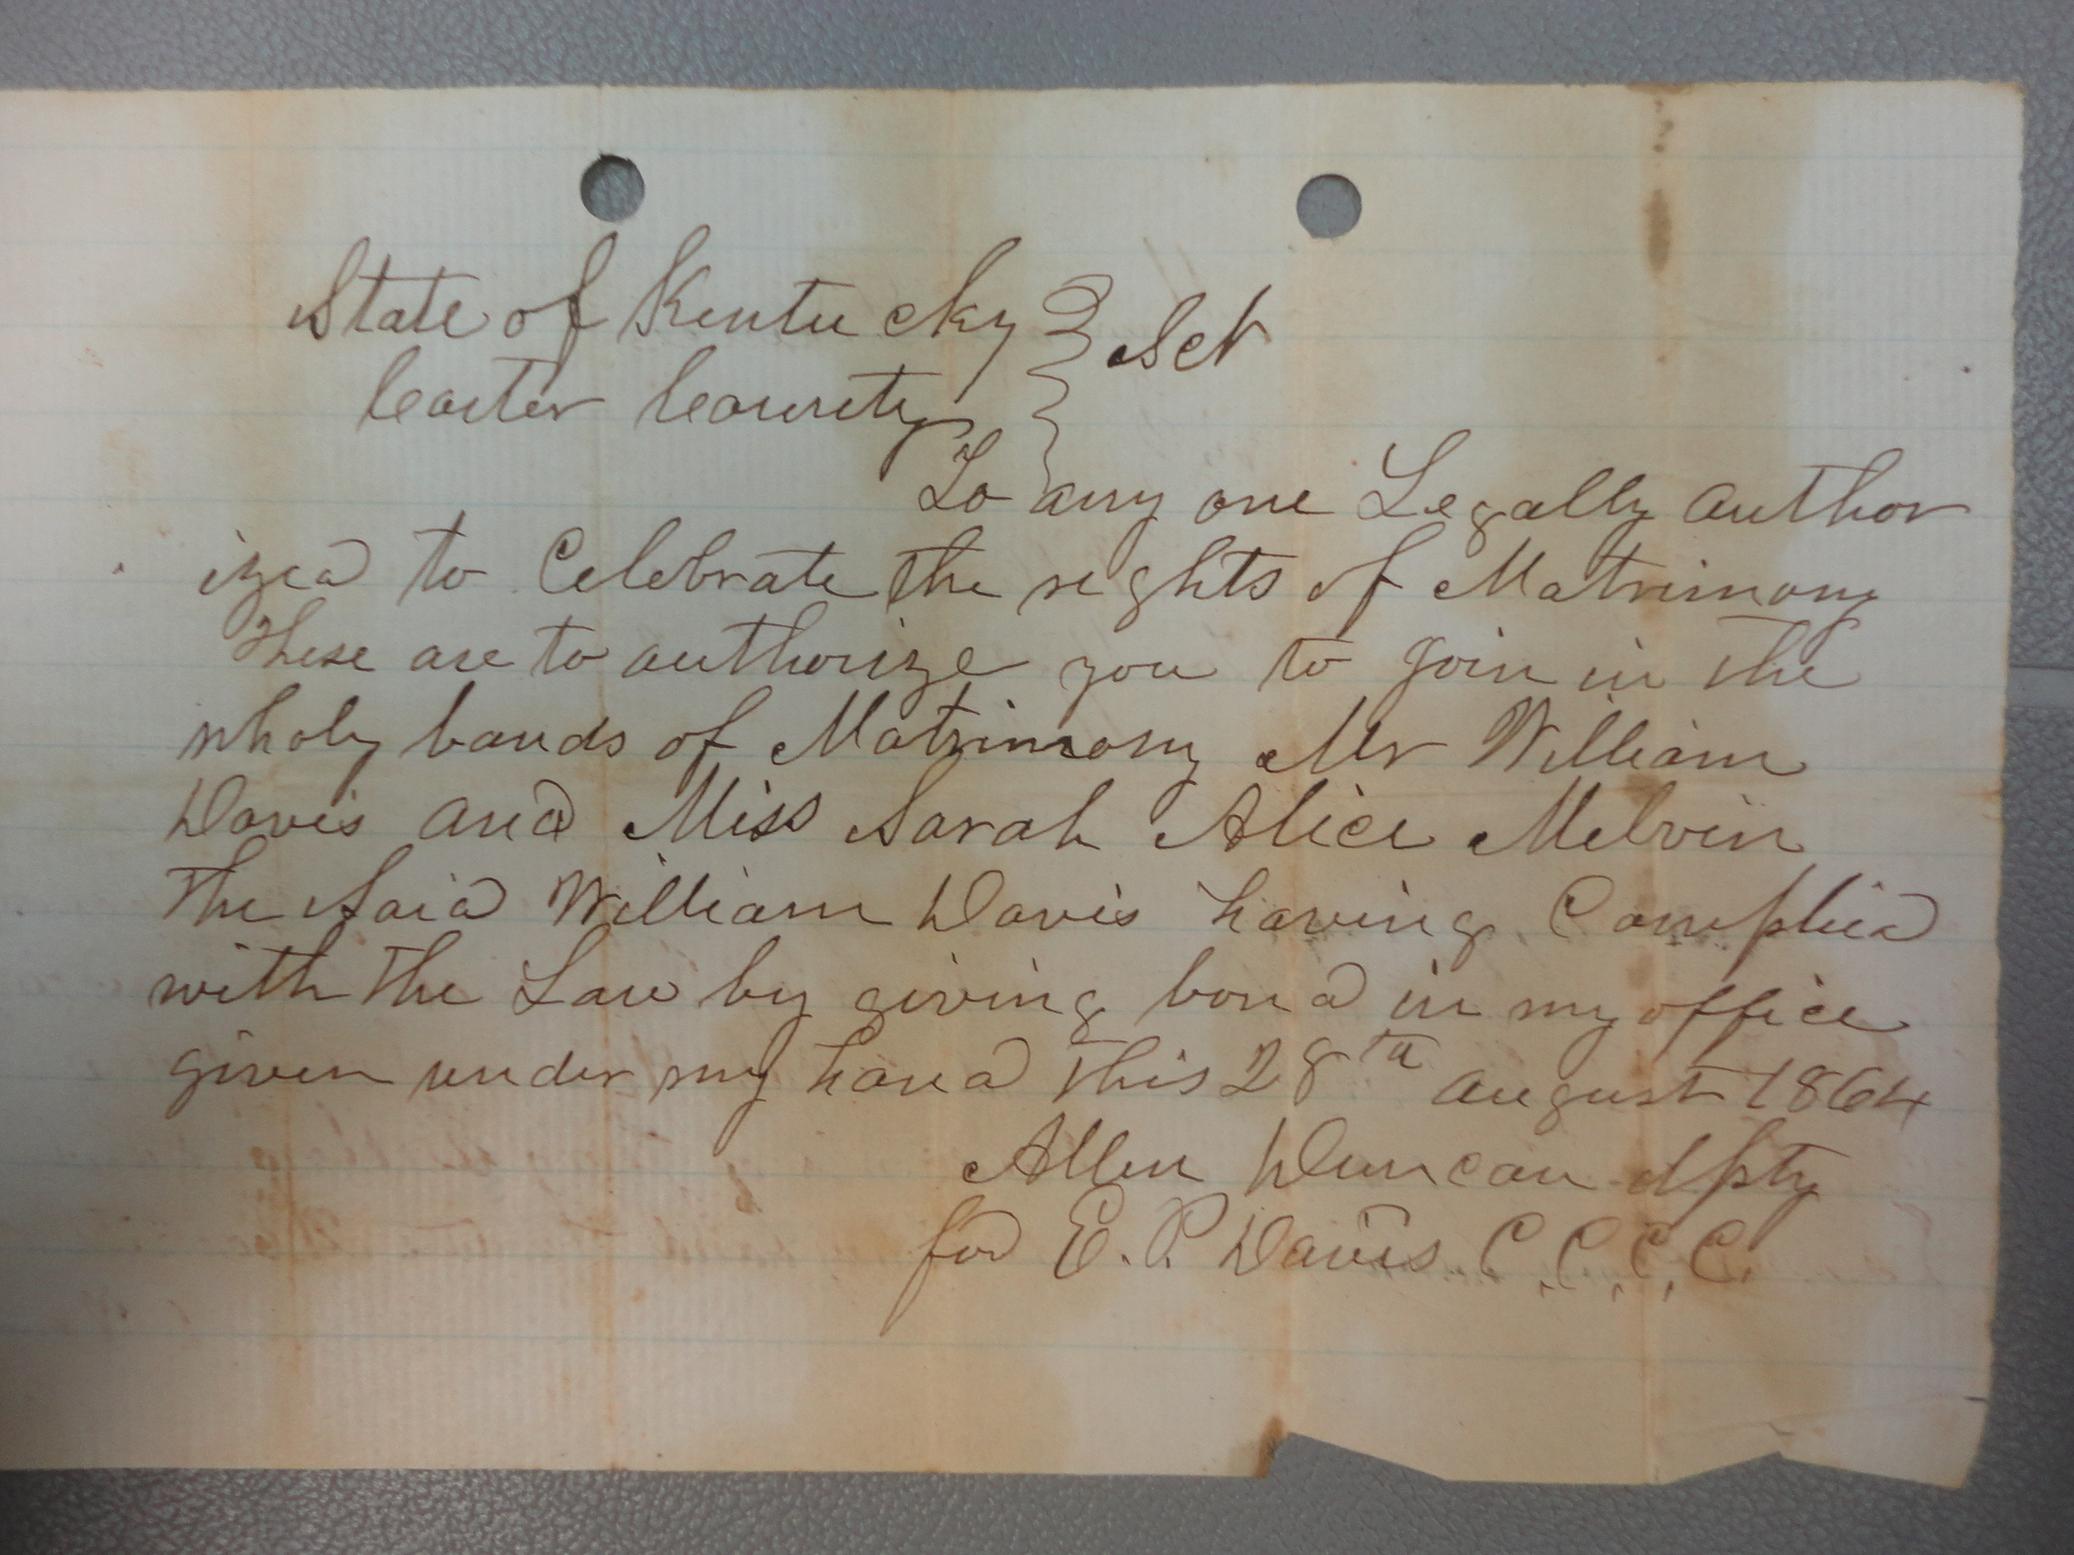 State of Kentucky } Sct
Carter County
To any one Legally author
ized to Celebrate the rights of Matrimony
These are to authorize you to join in the
wholy bands of Matrimony Mr William
Davis and Miss Sarah Alice Melvin
The Said William Davis having Complied
with the Law by giving bond in my office
given under my hand this 28th august 1864
Allen Duncan dpty
for E. P. Davis C.C.C.C.